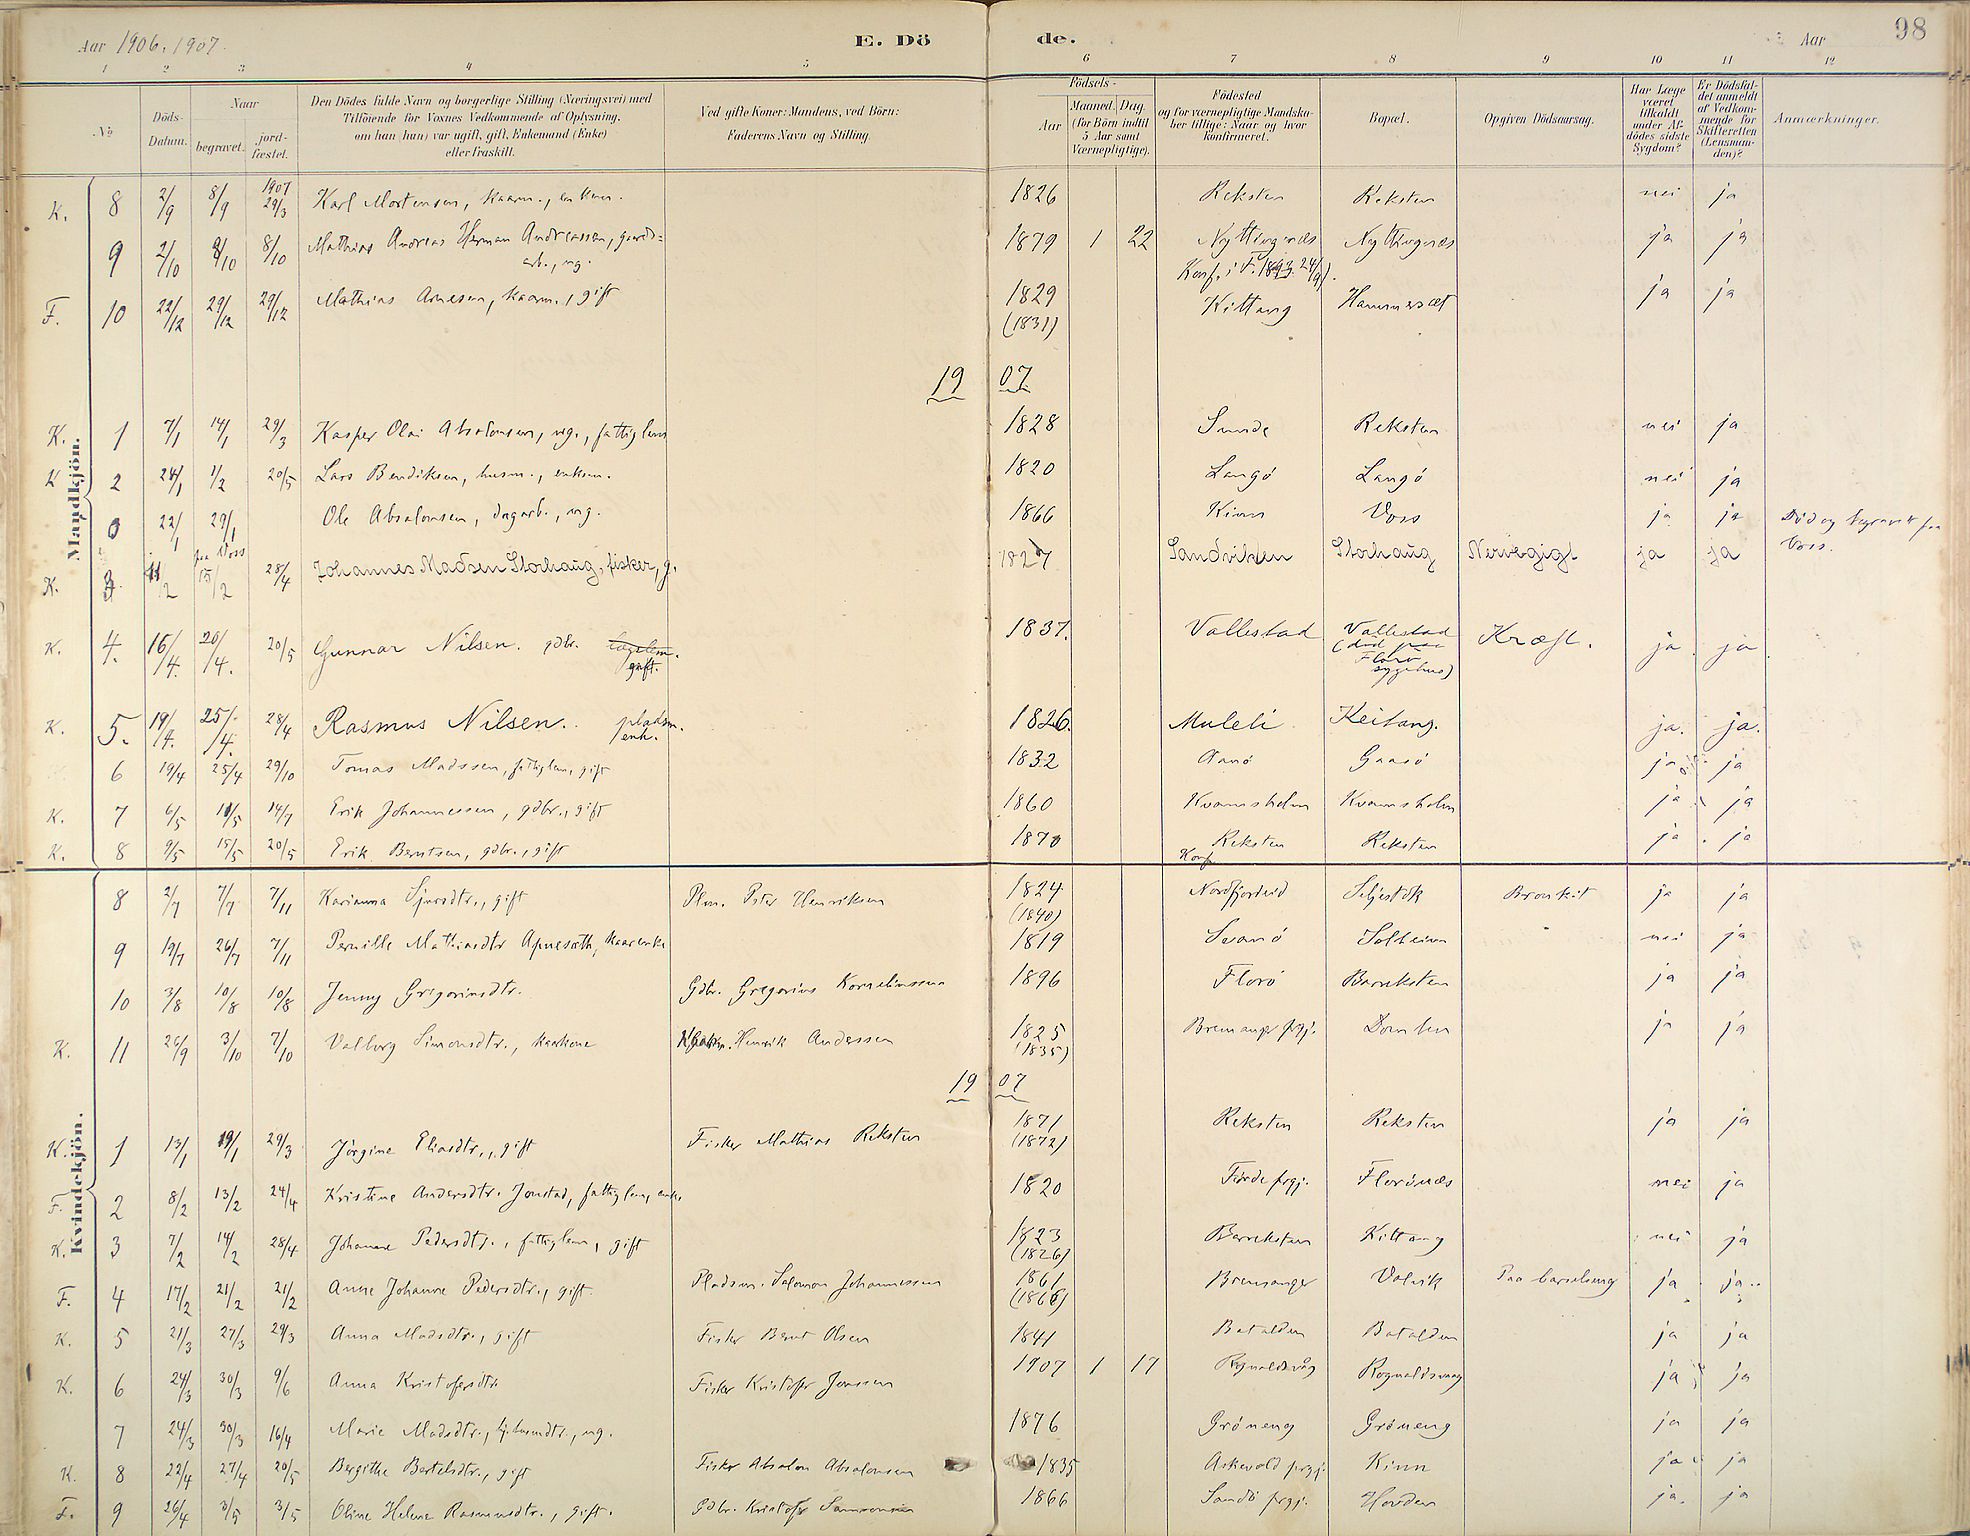 Aar 1906, 1907. E. Döde. Aar 98
1 2 3 4 5 6 7 8 9 10 11 12
№ Döds-Datum. Naar begravet. jordfæstet. Den Dödes fulde Navn og borgerlige Stilling (Næringsvei) med Tilföiende for Voxnes Vedkommende af Oplysning, om han (hun) var ugift, gift, Enkemand (Enke) eller fraskilt. Ved gifte Koner: Mandens, ved Börn: Faderens Navn og Stilling. Födsels- Aar Maaned. Dag. (for Börn indtil 5 Aar samt Værnepligtige). Födested og for værnepligtige Mandskaber tillige: Naar og hvor konfirmeret. Bopæl. Opgiven Dödsaarsag. Har Læge været tilkaldt under Afdödes sidste Sygdom? Er Dödsfaldet anmeldt af Vedkommende for Skifteretten (Lensmanden)? Anmærkninger.
Mandkjön.
K. 8 2/9 8/9 1907 29/3 Karl Mortensen, kaarm., enkem. 1826 Reksten Reksten nei ja
9 2/10 8/10 8/10 Mathias Andreas Herman Andreassen, gards= 1879 1 22 Nyttingnæs Nyttingnæs ja ja
arb., ug. Konf. i F. 1893 24/9).
F. 10 22/12 29/12 29/12 Mathias Arnesen, kaarm., gift 1829 Kittang Hammersæt ja ja
(1831)
19 07
K. 1 7/1 14/1 29/3 Kasper Olai Absalonsen, ug., fattiglem 1828 Sunde Reksten nei ja
K 2 24/1 1/2 20/5 Lars Bendiksen, husm., enkem. 1820 Langö Langö nei ja
0 22/1 29/1 Ole Absalonsen, dagarb., ug. 1866 Kinn Voss ja ja Död og begravet paa
paa Voss Voss.
K. 3 11/2 15/2 28/4 Johannes Madsen Storhaug, fisker, g. 1827 Sandviken Storhaug Nervegigt ja ja
K. 4. 16/4. 20/4. 20/5 Gunnar Nilsen. gdbr. gift. 1837. Vallestad Vallestad Kræft. ja ja
(död paa Florö sygehus)
K. 5. 19/4. 25/4. 28/4 Rasmus Nilsen. pladsm. enk. 1826. Muleli Keitang. ja. ja.
6 19/4 25/4 29/10 Tomas Madssen, fattiglem, gift 1832 Aanö Gaasö ja ja
K. 7 6/5 11/5 14/7 Erik Johannessen, gdbr., gift 1860 Kvamsholm Kvamsholm ja ja
K. 8 9/5 15/5 20/5 Erik Berntsen, gdbr., gift 1870 Reksten Reksten ja ja
Konf
Kvindekjön.
8 2/7 7/7 7/11 Karianna Sjursdtr., gift Plm. Peter Henriksen 1824 Nordfjordeid Seljestok Bronkit ja ja
(1840)
9 19/7 26/7 7/11 Pernille Mathiasdtr Apnesæth, kaarenke 1819 Svanö Solheim nei ja
10 3/8 10/8 10/8 Jenny Gregoriusdtr. Gdbr. Gregorius Korneliussen 1896 Florö Barreksten ja ja
K. 11 26/9 3/10 7/10 Valborg Simonsdtr., kaarkone Kaarm. Henrik Andersen 1825 Bremanger prgj. Domben ja ja
(1835)
19 07
K. 1 13/1 19/1 29/3 Jörgine Eliasdtr., gift Fisker Mathias Reksten 1871 Reksten Reksten ja ja
(1872)
F. 2 8/2 13/2 24/4 Kristine Andersdtr. Jonstad, fattiglem, enke 1820 Förde prgj. Florönæs nei ja
K. 3 7/2 14/2 28/4 Johanne Pedersdtr., fattiglem, gift 1823 Barreksten Kittang nei ja
(1826)
F. 4 17/2 21/2 21/2 Anne Johanne Pedersdtr., gift. Pladsm. Salomon Johannessen 1861 Bremanger Volvik Paa barselseng ja ja
(1866)
K. 5 21/3 27/3 29/3 Anna Madsdtr., gift Fisker Bernt Olsen 1841 Batalden Batalden ja ja
K. 6 24/3 30/3 9/6 Anna Kristofersdtr. Fisker Kristofer Jenssen 1907 1 17 Rognaldsvåg Rognaldsvaag ja ja
7 24/3 30/3 16/4 Marie Madsdtr., tj., ug. 1876 Gröneng Gröneng ja ja
K. 8 22/4 27/4 20/5 Bergithe Bertelsdtr., gift Fisker Absalon Absalonsen 1835 Askevold prgj. Kinn ja ja
F. 9 26/4 3/5 3/5 Oline Helene Rasmusdtr., gift. Gdbr. Kristofer Samsonsen 1866 Sandö prgj. Hovden ja. ja